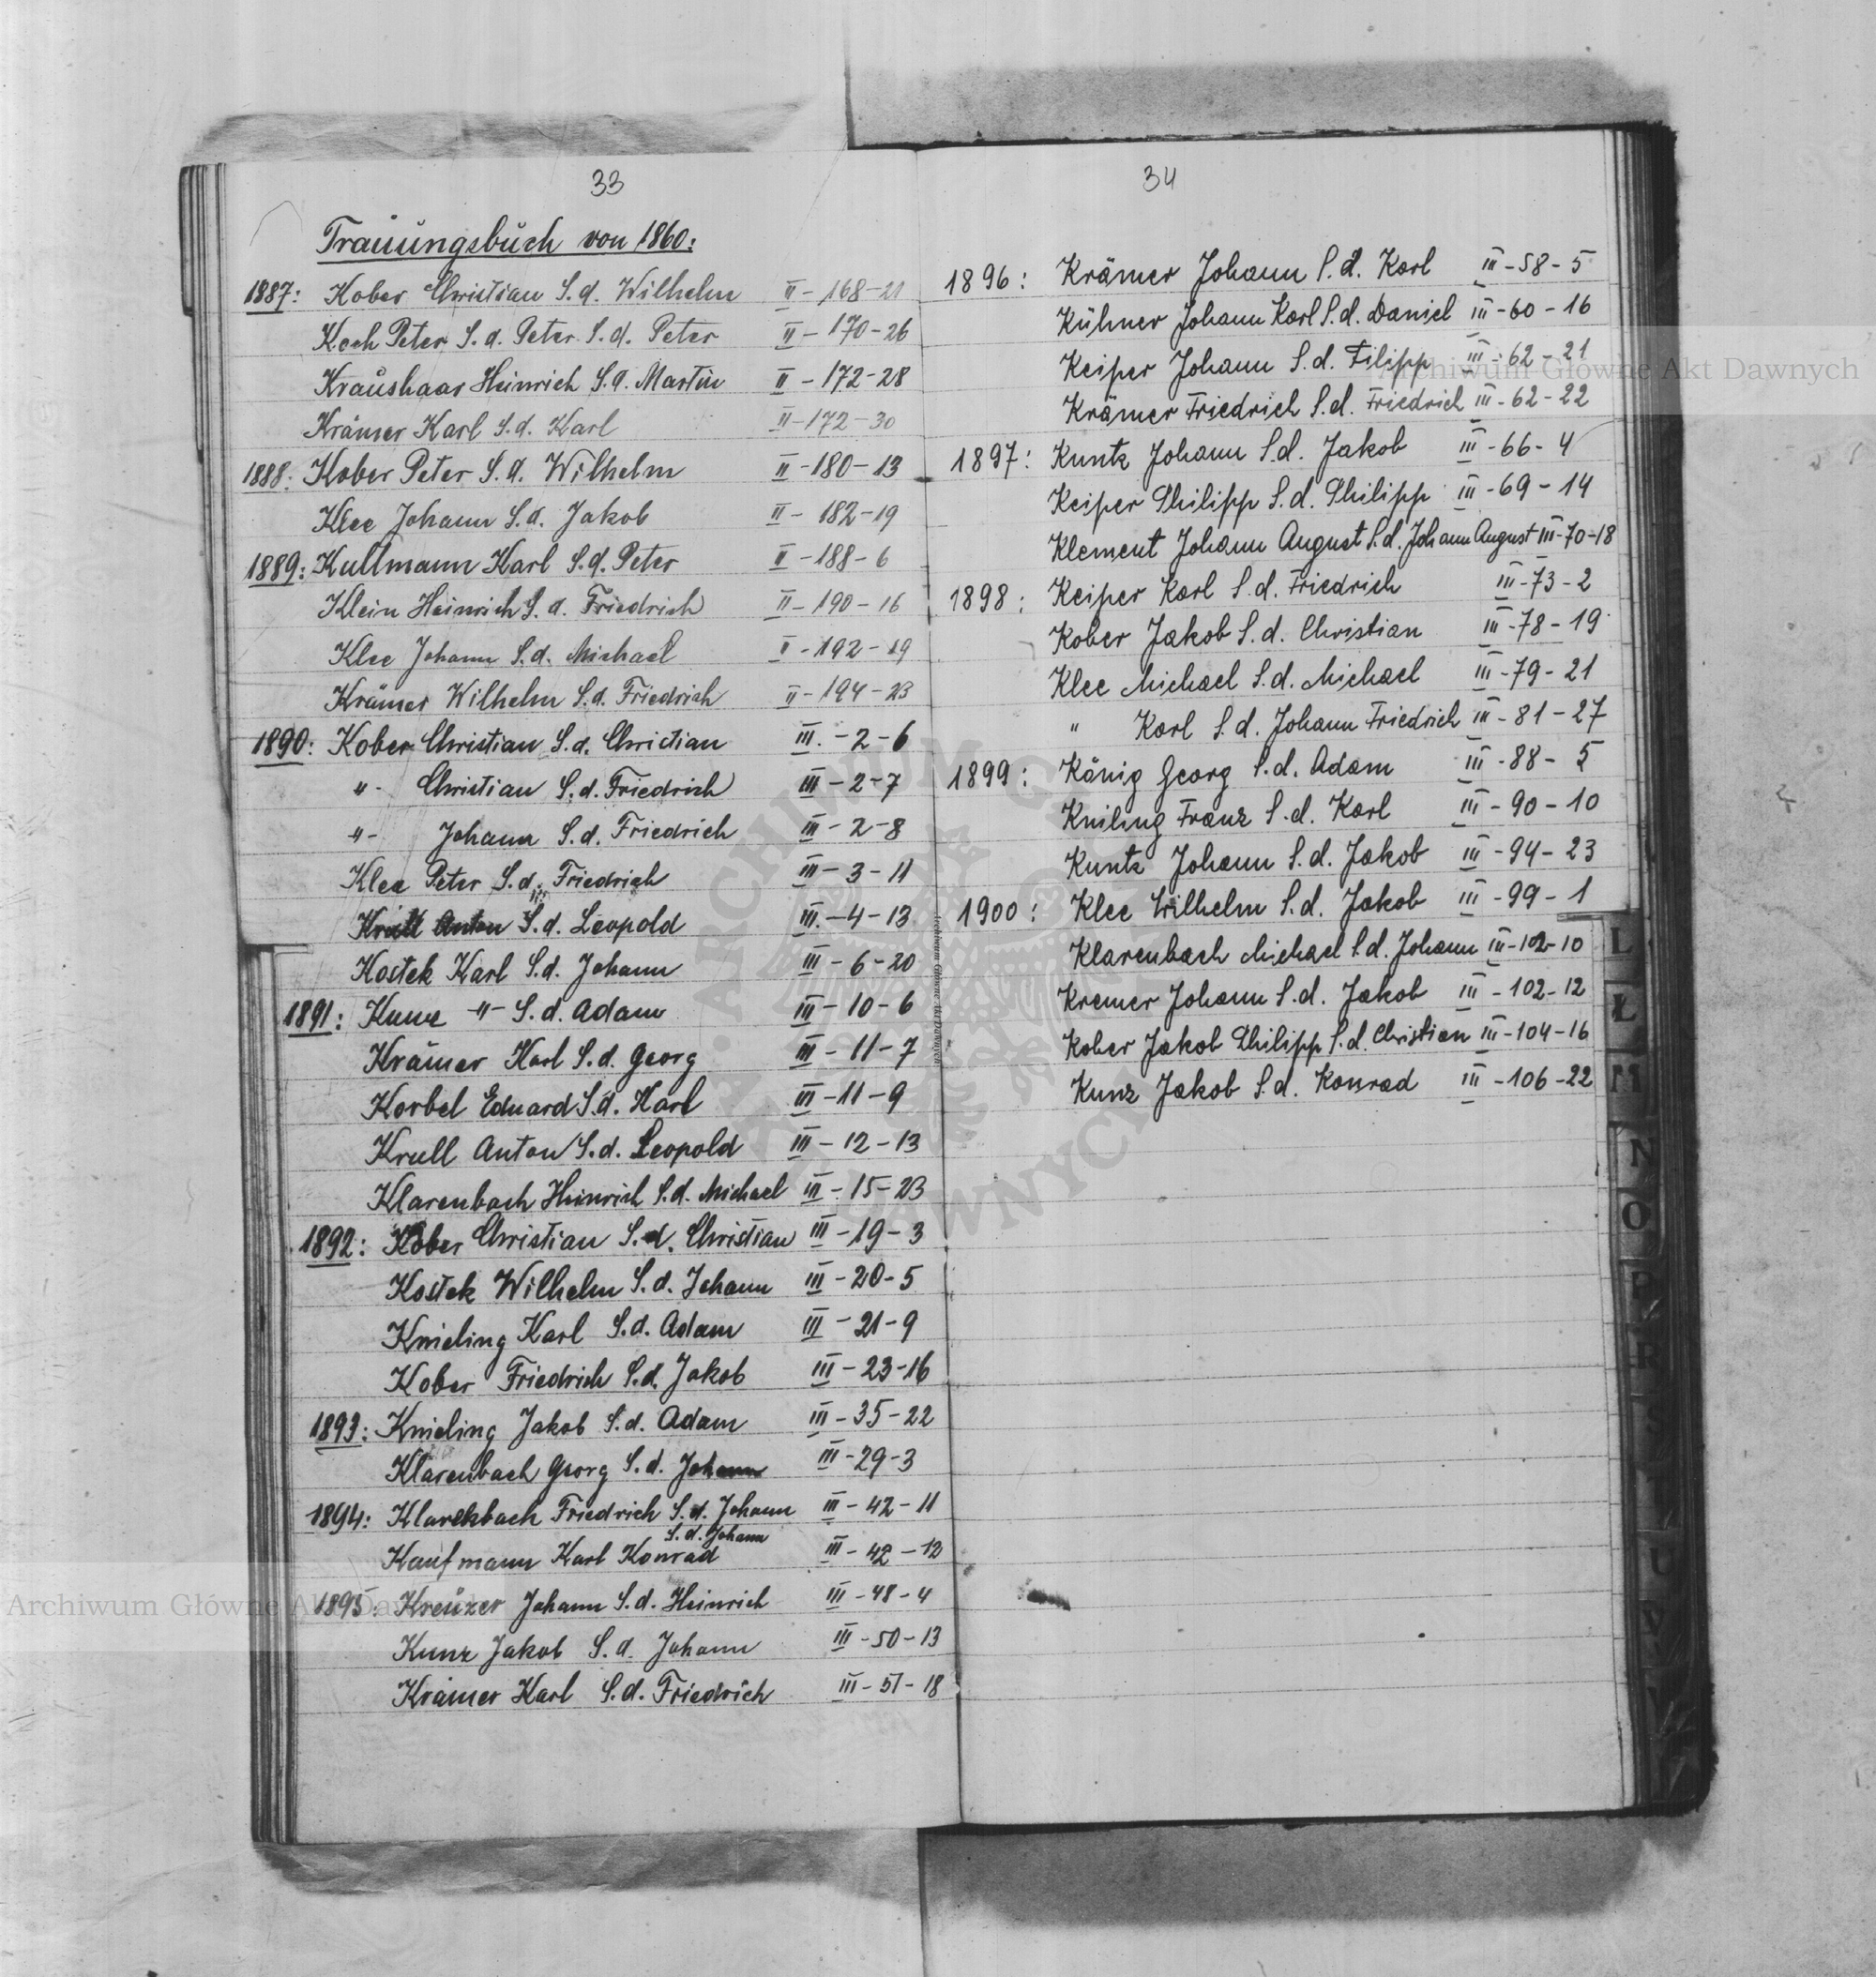 33
Trauungsbuch von 1860:
1887: Kober Christian S.d. Wilhelm II - 168-21
Koch Peter S.d. Peter S.d. Peter II - 170-26
Kraushaar Heinrich S.d. Martin II - 172-28
Krämer Karl S.d. Karl II - 172-30
1888: Kober Peter S.d. Wilhelm II - 180-13
Klee Johann S.d. Jakob II - 182-19
1889: Kullmann Karl S.d. Peter II - 188-6
Klein Heinrich S.d. Friedrich II - 190-16
Klee Johann S.d. Michael II - 192-19
Krämer Wilhelm S.d. Friedrich II - 194-23
1890: Kober Christian S.d. Christian III. - 2-6
-"- Christian S.d. Friedrich III - 2-7
-"- Johann S.d. Friedrich III - 2-8
Klee Peter S.d. Friedrich III - 3-11
Krull Anton S.d. Leopold III. - 4-13
Kostek Karl S.d. Johann III - 6-20
1891: Kunz -"- S.d. Adam III - 10-6
Krämer Karl S.d. Georg III - 11-7
Korbel Eduard S.d. Karl III - 11-9
Krull Anton S.d. Leopold III - 12-13
Klarenbach Heinrich S.d. Michael III - 15-23
1892: Kober Christian S.d. Christian III - 19-3
Kostek Wilhelm S.d. Johann III - 20-5
Knieling Karl S.d. Adam III - 21-9
Kober Friedrich S.d. Jakob III - 23-16
1893: Knieling Jakob S.d. Adam III - 35-22
Klarenbach Georg S.d. Johann III - 29-3
1894: Klarenbach Friedrich S.d. Johann III - 42-11
S.d. Johann
Kaufmann Karl Konrad III - 42-12
1895: Kreuzer Johann S.d. Heinrich III - 48-4
Kunz Jakob S.d. Johann III - 50-13
Krämer Karl S.d. Friedrich III - 51-18
34
1896: Krämer Johann S.d. Karl III - 58-5
Kühner Johann Karl S.d. Daniel III - 60-16
Keiper Johann S.d. Filipp III - 62-21
Krämer Friedrich S.d. Friedrich III - 62-22
1897: Kuntz Johann S.d. Jakob III - 66-4
Keiper Philipp S.d. Philipp III - 69-14
Klement Johann August S.d. Johann August III-70-18
1898: Keiper Karl S.d. Friedrich III-73-2
Kober Jakob S.d. Christian III-78-19
Klee Michael S.d. Michael III-79-21
" Karl S.d. Johann Friedrich III-81-27
1899: König Georg S.d. Adam III-88-5
Kniling Franz S.d. Karl III-90-10
Kuntz Johann S.d. Jakob III-94-23
1900: Klee Wilhelm S.d. Jakob III-99-1
Klarenbach Michael S.d. Johann III-102-10
Kremer Johann S.d. Jakob III-102-12
Kober Jakob Philipp S.d. Christian III-104-16
Kunz Jakob S.d. Konrad III-106-22
L
Ł
M
N
O
P
R
S
T
U
Archiwum Główne Akt Dawnych
Archiwum Główne Akt Dawnych
Archiwum Główne Akt Dawnych